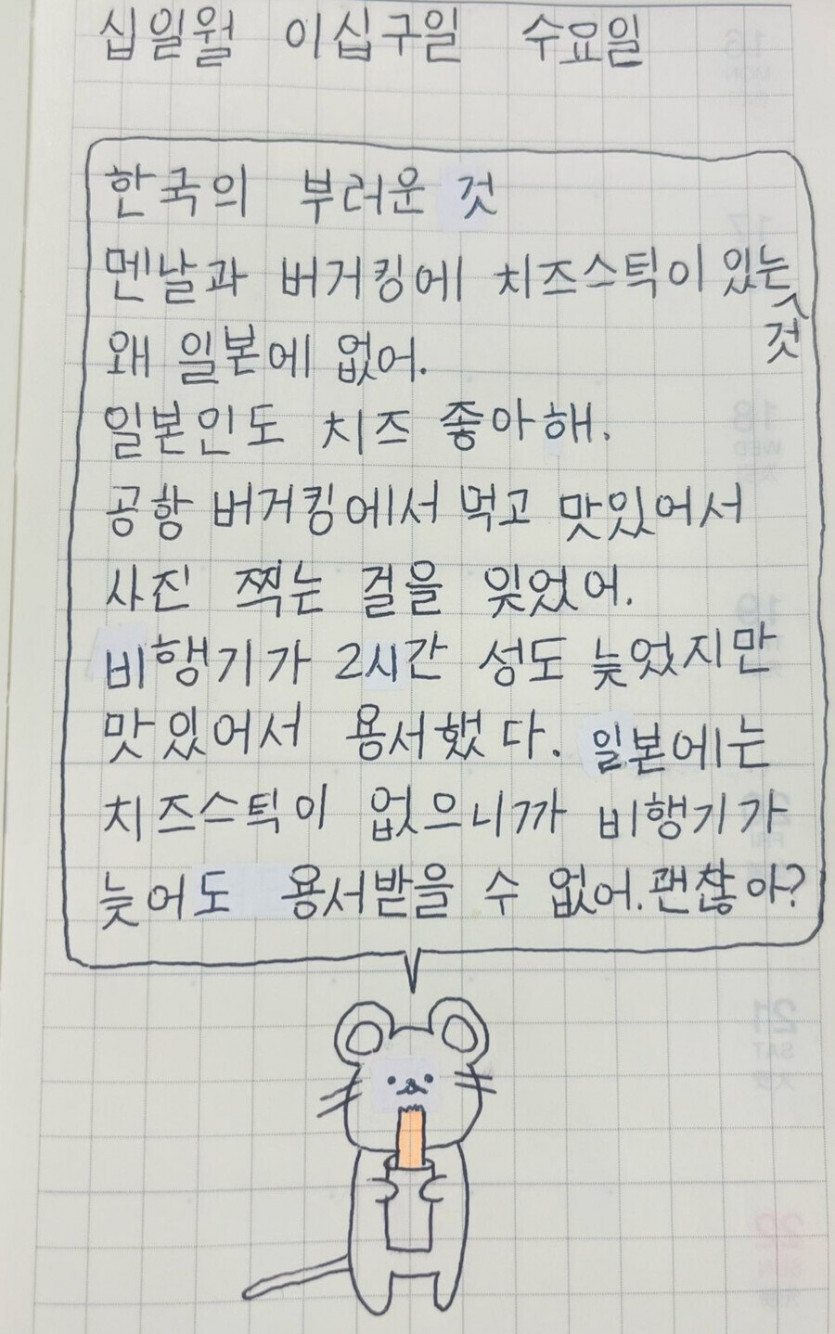 십일월 이십구일 수요일
한국의 부러운 것
멘날과 버거킹에 치즈스틱이 있는
것
왜 일본에 없어.
일본인도 치즈 좋아해.
공항 버거킹에서 먹고 맛있어서
사진 찍는 걸을 잊었어.
비행기가 2시간 성도 늦었지만
맛있어서 용서했다. 일본에는
치즈스틱이 없으니까 비행기가
늦어도 용서받을 수 없어. 괜찮아?